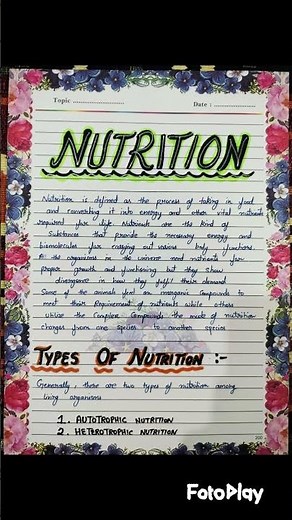 Topic ........................
Date : ..................
NUTRITION
Nutrition is defined as the process of taking in food
and converting it into energy and other vital nutrients
required for life. Nutrients are the kind of
Substances that provide the necessary energy and
biomolecules for carrying out various body functions.
All the organisms in the universe need nutrients for
proper growth and functioning but they show
divergence in how they fulfil their demand
Some of the animals feed on inorganic compounds to
meet their Requirement of nutrients while others
utilize the Complex Compounds the mode of nutrition
changes from one species to another species
TYPES OF NUTRITION :-
Generally, there are two types of nutrition among
living organisms
1. AUTOTROPHIC NUTRITION
2. HETEROTROPHIC NUTRITION
FotoPlay